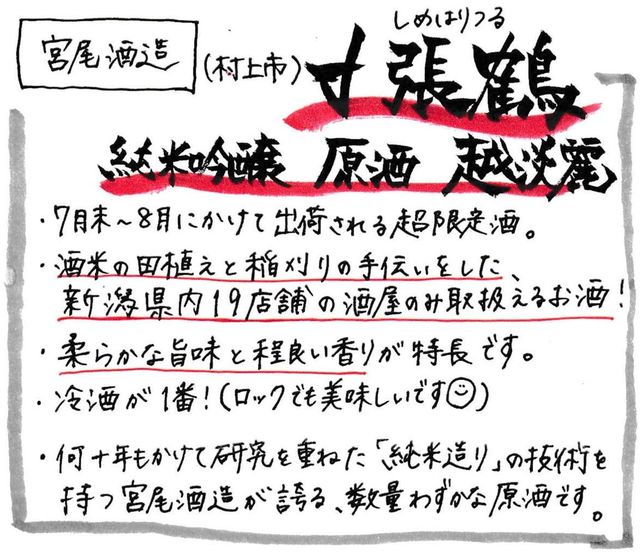 宮尾酒造
(村上市)
しめはりつる
〆張鶴
純米吟醸 原酒 越淡麗
・7月末~8月にかけて出荷される超限定酒。
・酒米の田植えと稲刈りの手伝いをした、
新潟県内19店舗の酒屋のみ取扱えるお酒!
・柔らかな旨味と程良い香りが特長です。
・冷酒が1番!(ロックでも美味しいです☺)
・何十年もかけて研究を重ねた「純米造り」の技術を
持つ宮尾酒造が誇る、数量わずかな原酒です。